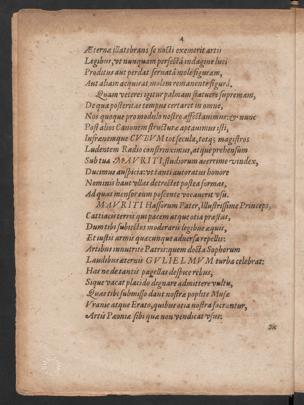 4
Æterna illatebrans se nocti exemerit artis
Legibus, vt nunquam perfectâ indagine luci
Proditus aut perdat seruatâ mole figuram,
Aut aliam acquirat molem remanente figurâ,
Quam veteres igitur palmam statuere supremam,
De qua posteritas tempus certaret in omne,
Nos quoque pro modulo nostro affectauimus: & nunc
Post alios Canonem structuræ aptauimus isti,
Iusránemque CVBVM tot secula, totque magistros
Ludentem Radio constrinximus, atque prehensum
Sub tua MAVRITI, studiorum acerrime vindex,
Ducimus auspicia: vt tanti autoratus honore
Nominis haut vllas detrectet postea formas,
Ad quas mensorum poscente vocauerit vsu.
MAVRITI Hassorum Pater, Illustrissime Princeps,
Cattiacis terris qui pacem atque otia præstas,
Dum tibi subiectos moderaris legibus æquis,
Et iustis armis quæcunque aduersa repellis:
Artibus innutrite Patris, quem docta Sophorum
Laudibus æternis GVLIELMVM turba celebrat:
Has ne de tantis pagellas despice rebus,
Sique vacat placido dignare admittere vultu,
Quas tibi submisso dant nostræ poplite Musæ
Vranie atque Erato, quibus otia nostra sacrantur,
Artis Pæoniæ sibi quæ non vendicat vsus.